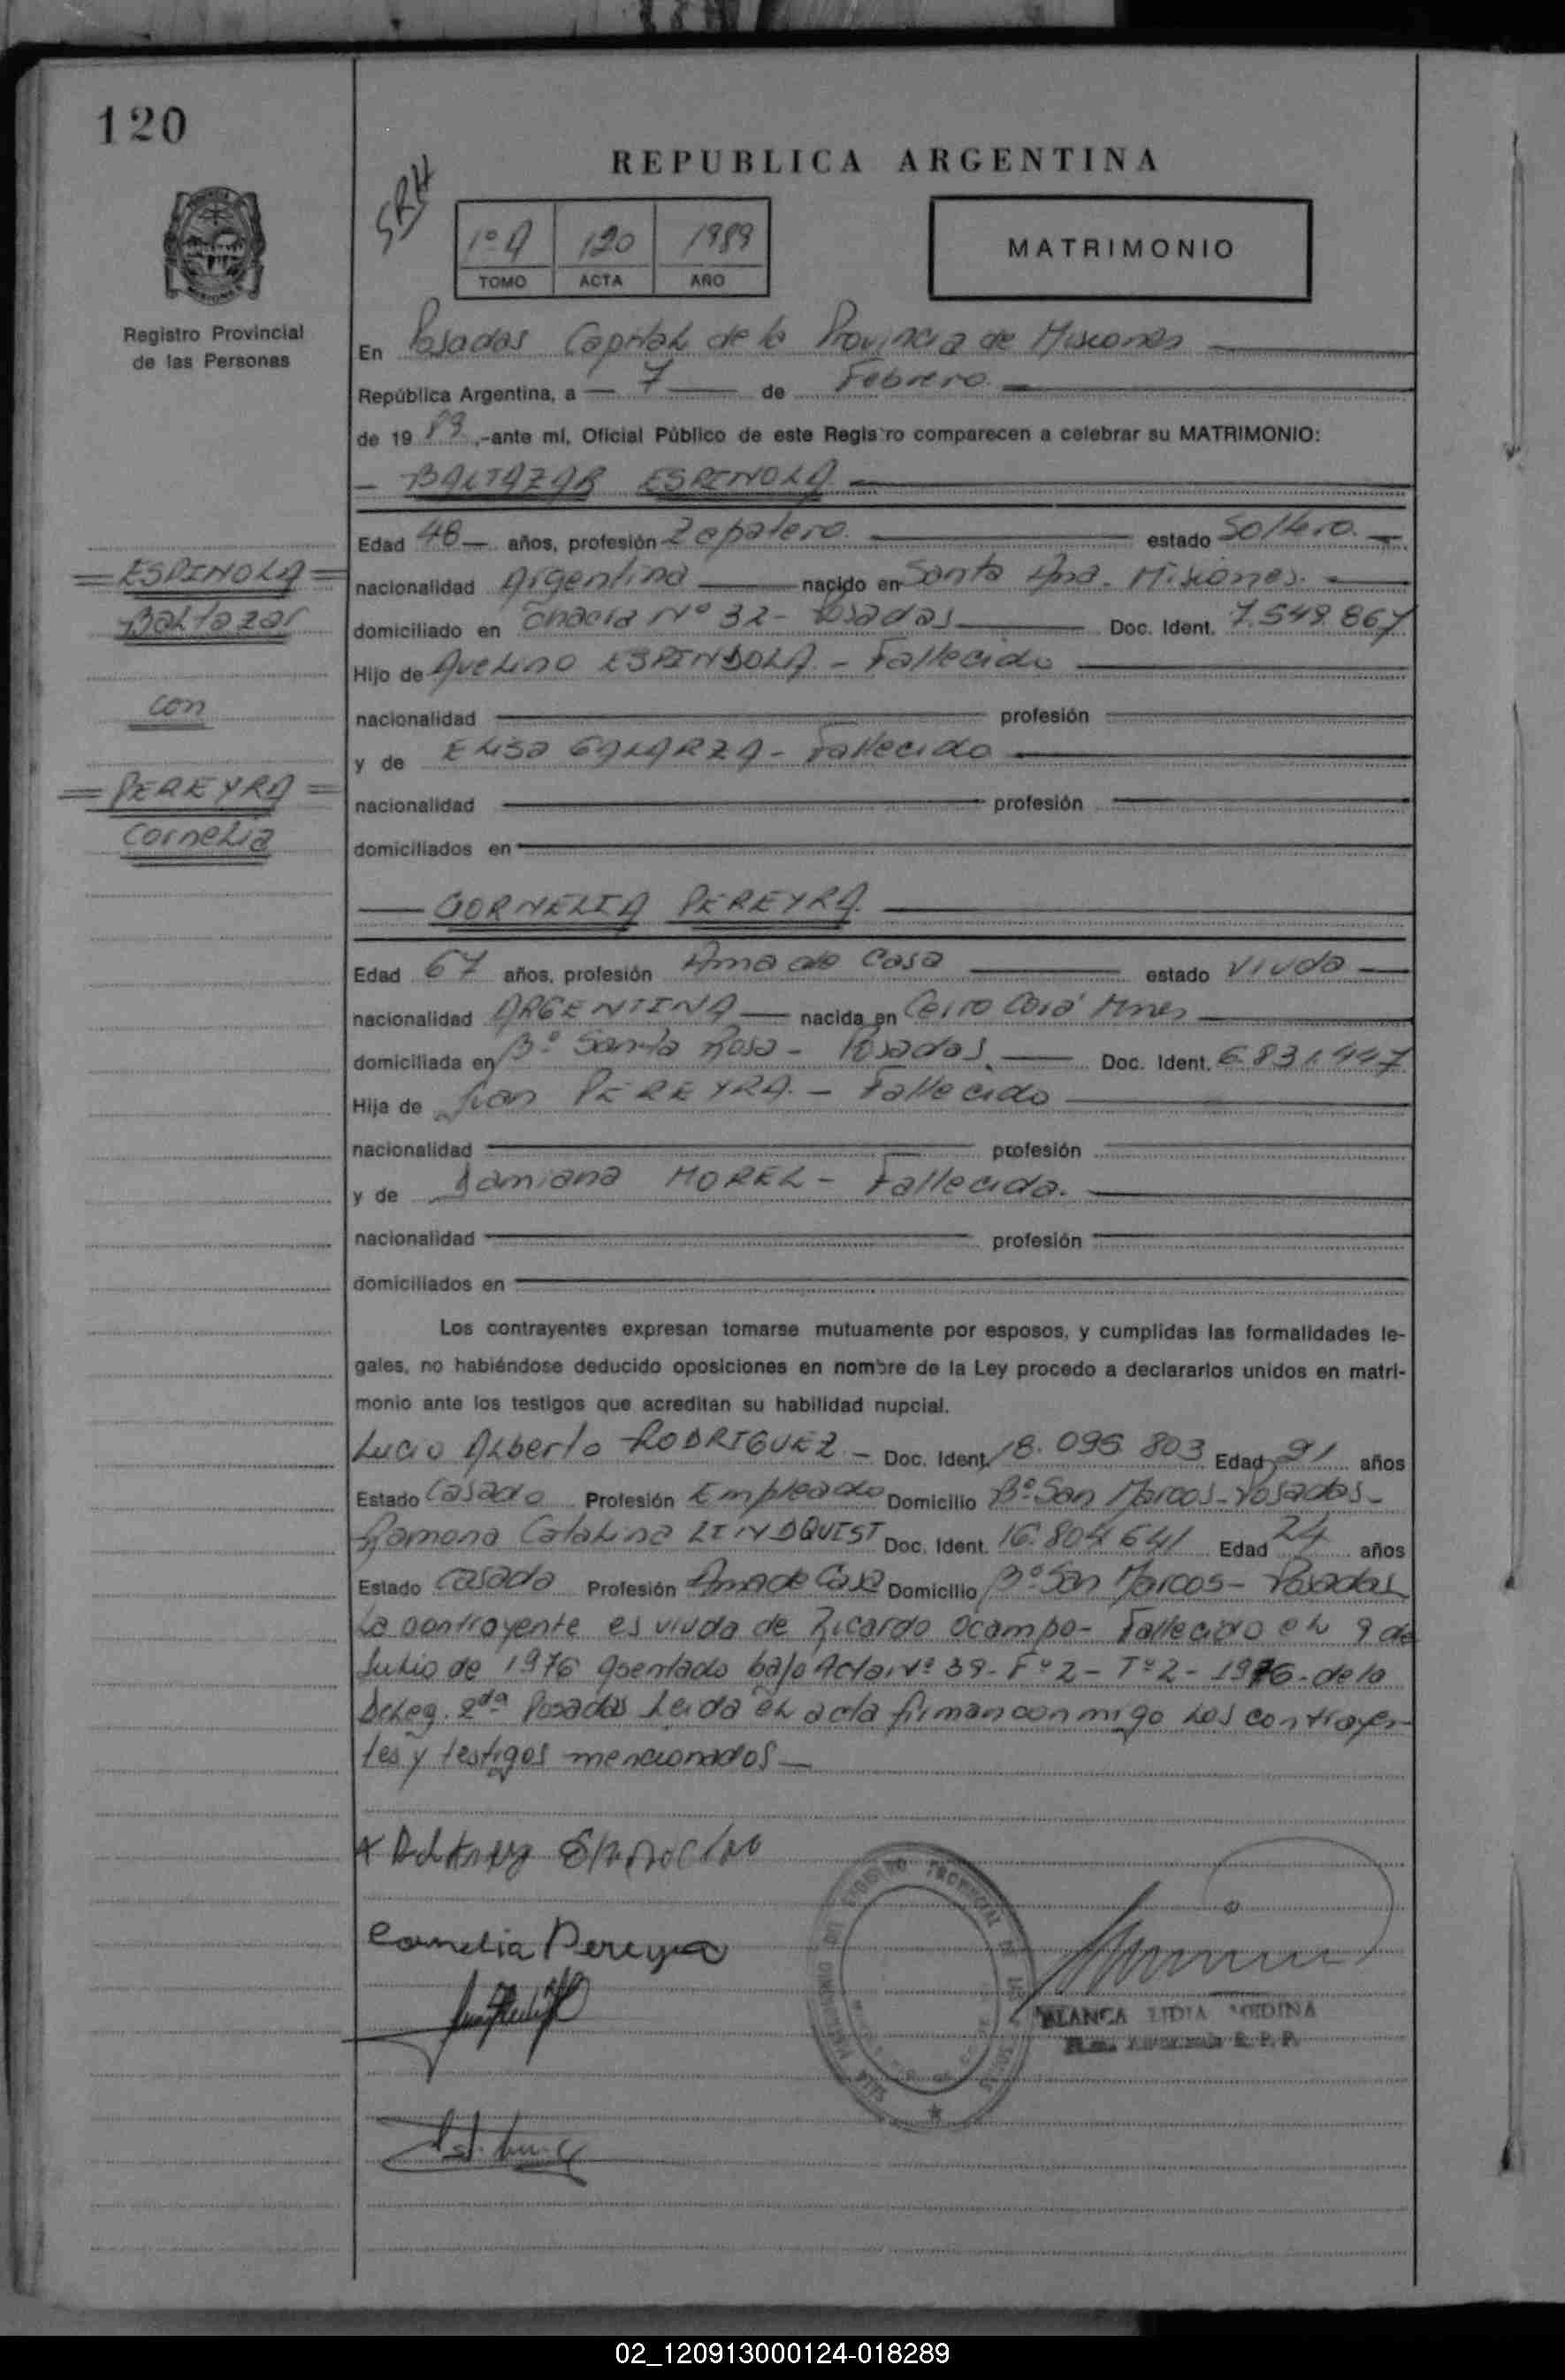 120
REPUBLICA ARGENTINA
SRH
1º A 120 1989
TOMO ACTA AÑO
MATRIMONIO
Registro Provincial
de las Personas
En Posadas Capital de la Provincia de Misiones
República Argentina, a 7 de Febrero
de 19 89 ,-ante mí, Oficial Público de este Registro comparecen a celebrar su MATRIMONIO:
BALTAZAR ESPINOLA
Edad 48 años, profesión Zapatero. estado Soltero.
nacionalidad Argentina nacido en Santa Ana. Misiones.
domiciliado en Chacra Nº 32- Posadas Doc. Ident. 7.549.867
Hijo de Avelino ESPINDOLA - Fallecido
nacionalidad profesión
y de Elisa GALARZA - Fallecido
nacionalidad profesión
domiciliados en
ESPINOLA
Baltazar
con
PEREYRA
Cornelia
CORNELIA PEREYRA
Edad 67 años, profesión Ama de Casa estado Viuda
nacionalidad ARGENTINA nacida en Cerro Corá Mnes
domiciliada en Bº Santa Rosa - Posadas Doc. Ident. 6.831.447
Hija de Juan PEREYRA. - Fallecido
nacionalidad profesión
y de Damiana MOREL - Fallecida.
nacionalidad profesión
domiciliados en
Los contrayentes expresan tomarse mutuamente por esposos, y cumplidas las formalidades le-
gales, no habiéndose deducido oposiciones en nombre de la Ley procedo a declararlos unidos en matri-
monio ante los testigos que acreditan su habilidad nupcial.
Lucio Alberto RODRIGUEZ - Doc. Ident. 18.095.803 Edad 21 años
Estado Casado Profesión Empleado Domicilio Bº San Marcos - Posadas -
Ramona Catalina LINDQUIST Doc. Ident. 16.804.641 Edad 24 años
Estado Casada Profesión Ama de Casa Domicilio Bº San Marcos - Posadas
La contrayente es viuda de Ricardo Ocampo - Fallecido el 9 de
Julio de 1976 asentado bajo Acta Nº 39 - Fº 2 - Tº 2 - 1976 - de la
Deleg. 2da Posadas Leida el acta firman conmigo los contrayen-
tes y testigos mencionados
Cornelia Pereyra
BLANCA LIDIA MEDINA
R. P. P.
02_120913000124-018289